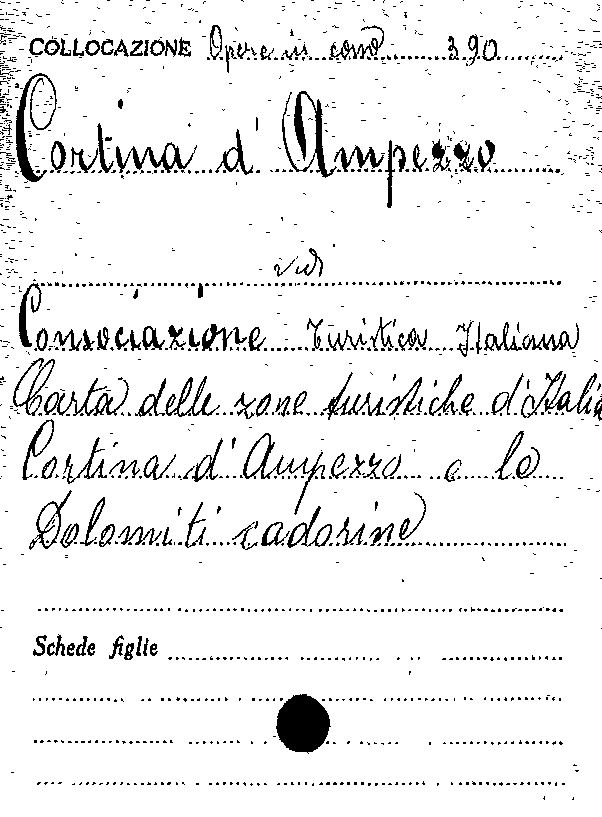 COLLOCAZIONE Opere in cont. 390
Cortina d'Ampezzo
vedi
Consociazione Turistica Italiana
Carta delle zone turistiche d'Italia
Cortina d'Ampezzo e le
Dolomiti cadorine
Schede figlie